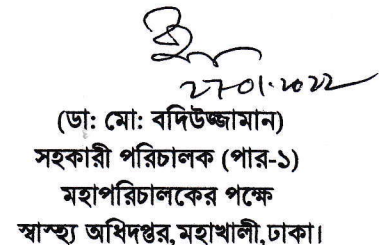 27-01-2022
(ডা: মো: বদিউজ্জামান)
সহকারী পরিচালক (পার-১)
মহাপরিচালকের পক্ষে
স্বাস্হ্য অধিদপ্তর,মহাখালী,ঢাকা।